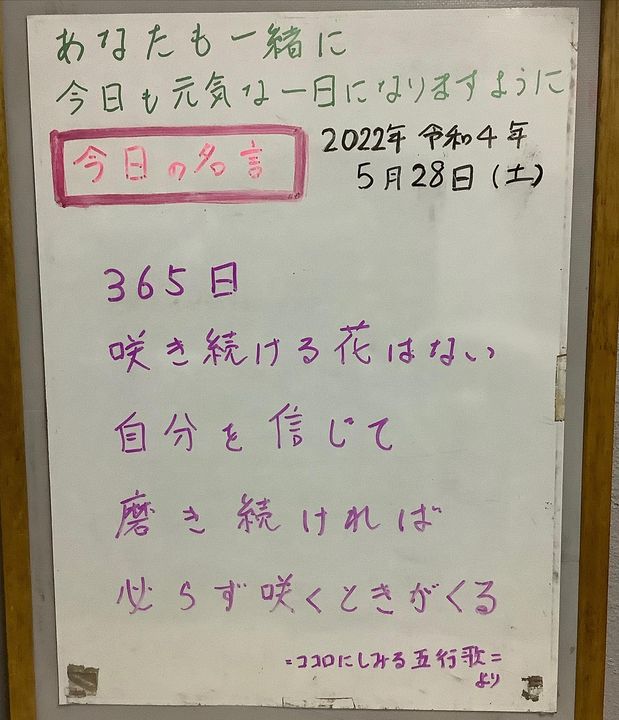 あなたも一緒に
今日も元気な一日になりますように
今日の名言
2022年 令和4年
5月28日(土)
365日
咲き続ける花はない
自分を信じて
磨き続ければ
必らず咲くときがくる
=ココロにしみる五行歌=
より